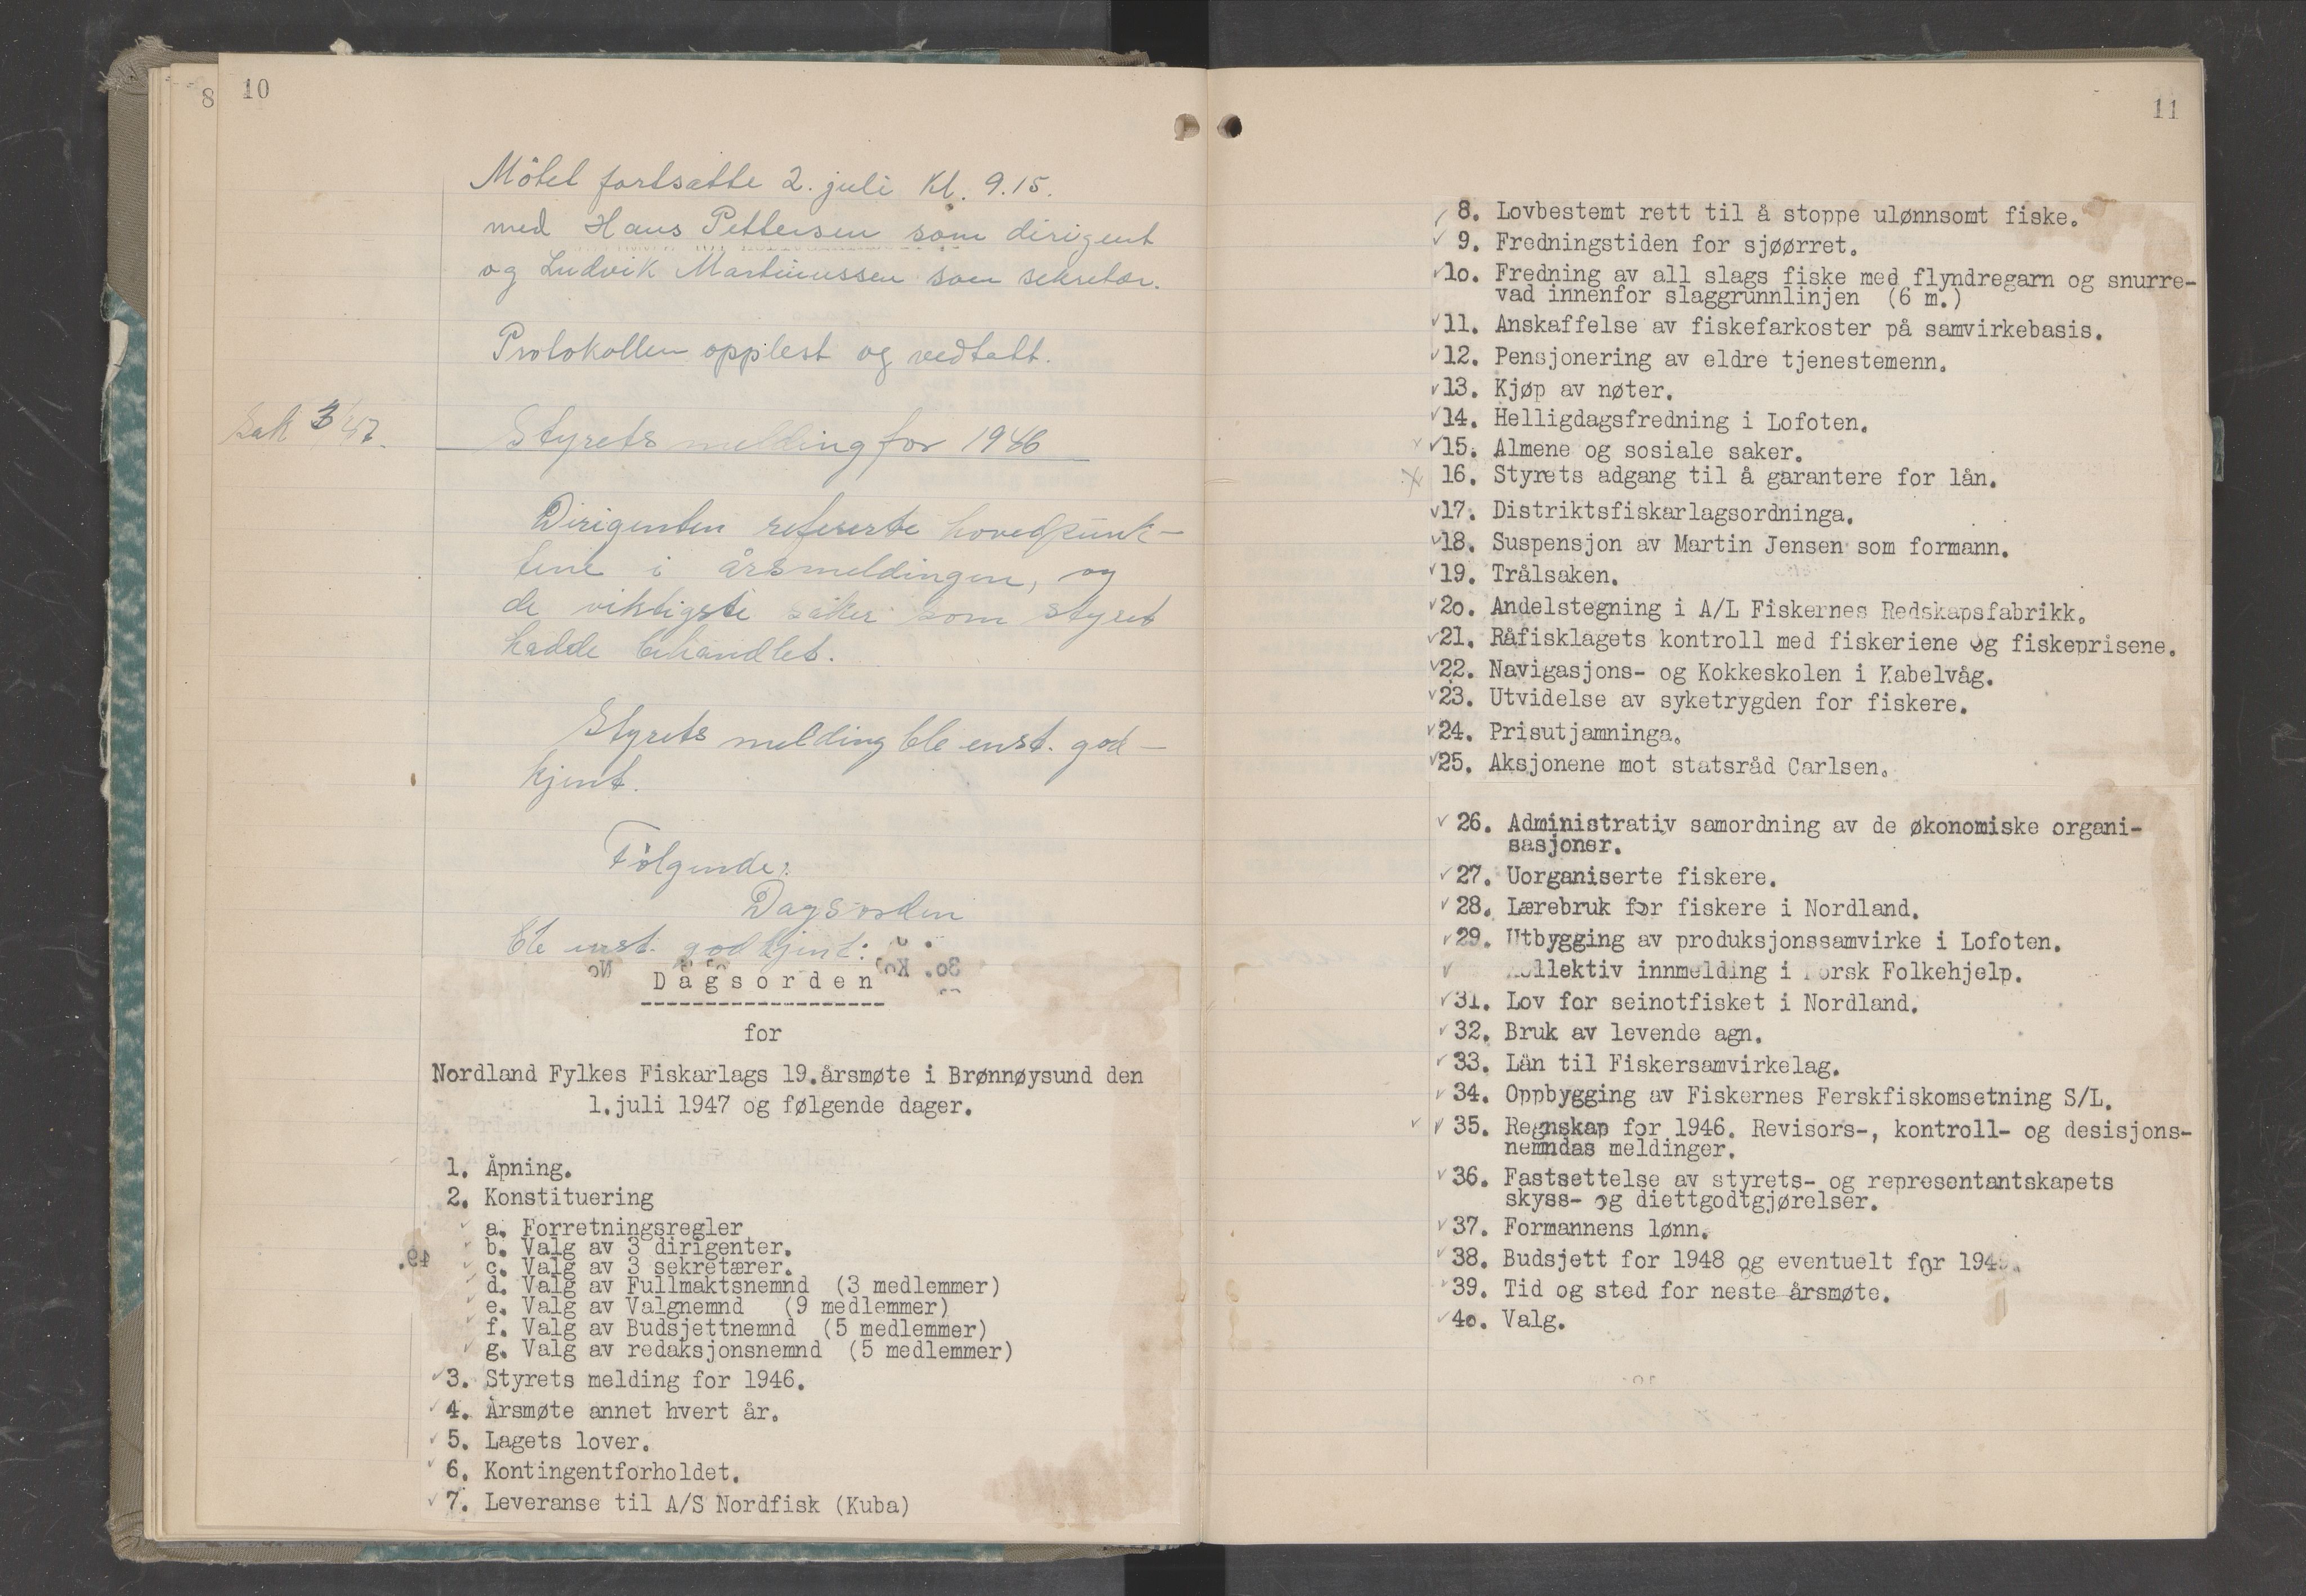 8
10
Mötet fortsatte 2. juli Kl. 9.15.
med Hans Pettersen som dirigent
og Ludvik Martinussen som sekretær.
Protokollen opplest og vedtatt.
Sak 3/47.
Styrets melding for 1946
Dirigenten refererte hovedpunk-
tene i årsmeldingen, og
de viktigste saker som styret
hadde behandlet.
Styrets melding ble enst. god-
kjent.
Følgende:
Dagsorden
ble enst. godkjent:
Dagsorden
for
Nordland Fylkes Fiskarlags 19.årsmøte i Brønnøysund den
1.juli 1947 og følgende dager.
1. Åpning.
2. Konstituering
a. Forretningsregler
b. Valg av 3 dirigenter.
c. Valg av 3 sekretærer.
d. Valg av Fullmaktsnemnd (3 medlemmer)
e. Valg av Valgnemnd (9 medlemmer)
f. Valg av Budsjettnemnd (5 medlemmer)
g. Valg av redaksjonsnemnd (5 medlemmer)
3. Styrets melding for 1946.
4. Årsmøte annet hvert år.
5. Lagets lover.
6. Kontingentforholdet.
7. Leveranse til A/S Nordfisk (Kuba)
11
8. Lovbestemt rett til å stoppe ulønnsomt fiske.
9. Fredningstiden for sjøørret.
1o. Fredning av all slags fiske med flyndregarn og snurre-
vad innenfor slaggrunnlinjen (6 m.)
11. Anskaffelse av fiskefarkoster på samvirkebasis.
12. Pensjonering av eldre tjenestemenn.
13. Kjøp av nøter.
14. Helligdagsfredning i Lofoten.
15. Almene og sosiale saker.
16. Styrets adgang til å garantere for lån.
17. Distriktsfiskarlagsordninga.
18. Suspensjon av Martin Jensen som formann.
19. Trålsaken.
2o. Andelstegning i A/L Fiskernes Redskapsfabrikk.
21. Råfisklagets kontroll med fiskeriene og fiskeprisene.
22. Navigasjons- og Kokkeskolen i Kabelvåg.
23. Utvidelse av syketrygden for fiskere.
24. Prisutjamninga.
25. Aksjonene mot statsråd Carlsen.
26. Administrativ samordning av de økonomiske organi-
sasjoner.
27. Uorganiserte fiskere.
28. Lærebruk for fiskere i Nordland.
29. Utbygging av produksjonssamvirke i Lofoten.
ollektiv innmelding i orsk Folkehjelp.
31. Lov for seinotfisket i Nordland.
32. Bruk av levende agn.
33. Lån til Fiskersamvirkelag.
34. Oppbygging av Fiskernes Ferskfiskomsetning S/L.
35. Regnskap for 1946. Revisors-, kontroll- og desisjons-
nemndas meldinger.
36. Fastsettelse av styrets- og representantskapets
skyss- og diettgodtgjørelser.
37. Formannens lønn.
38. Budsjett for 1948 og eventuelt for
39. Tid og sted for neste årsmøte.
4o. Valg.